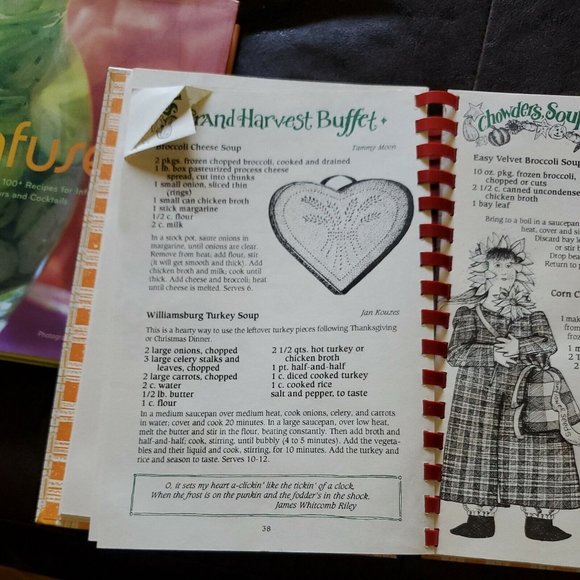 nfuse
100+ Recipes for Inf
ors and Cocktails
Photogra
Grand Harvest Buffet
Broccoli Cheese Soup
Tammy Moon
2 pkgs. frozen chopped broccoli, cooked and drained
1 lb. box pasteurized process cheese
spread, cut into chunks
1 small onion, sliced thin
(rings)
1 small can chicken broth
1 stick margarine
1/2 c. flour
2 c. milk
In a stock pot, saute onions in
margarine, until onions are clear.
Remove from heat; add flour, stir
(it will get smooth and thick). Add
chicken broth and milk; cook until
thick. Add cheese and broccoli; heat
until cheese is melted. Serves 6.
Williamsburg Turkey Soup
Jan Kouzes
This is a hearty way to use the leftover turkey pieces following Thanksgiving
or Christmas Dinner.
2 large onions, chopped
3 large celery stalks and
leaves, chopped
2 large carrots, chopped
2 c. water
1/2 lb. butter
1 c. flour
2 1/2 qts. hot turkey or
chicken broth
1 pt. half-and-half
1 c. diced cooked turkey
1 c. cooked rice
salt and pepper, to taste
In a medium saucepan over medium heat, cook onions, celery, and carrots
in water; cover and cook 20 minutes. In a large saucepan, over low heat,
melt the butter and stir in the flour, beating constantly. Then add broth and
half-and-half; cook, stirring, until bubbly (4 to 5 minutes). Add the vegeta-
bles and their liquid and cook, stirring, for 10 minutes. Add the turkey and
rice and season to taste. Serves 10-12.
O, it sets my heart a-clickin' like the tickin' of a clock,
When the frost is on the punkin and the fodder's in the shock.
James Whitcomb Riley
38
Chowders, Soup
Easy Velvet Broccoli Soup
10 oz. pkg. frozen broccoli,
chopped or cuts
2 1/2 c. canned uncondense
chicken broth
1 bay leaf
Bring to a boil in a saucepan
heat, cover and si
Discard bay l
or stir b
Drop bea
Return to
Corn C
1 mak
from
fro
1 m
2 t